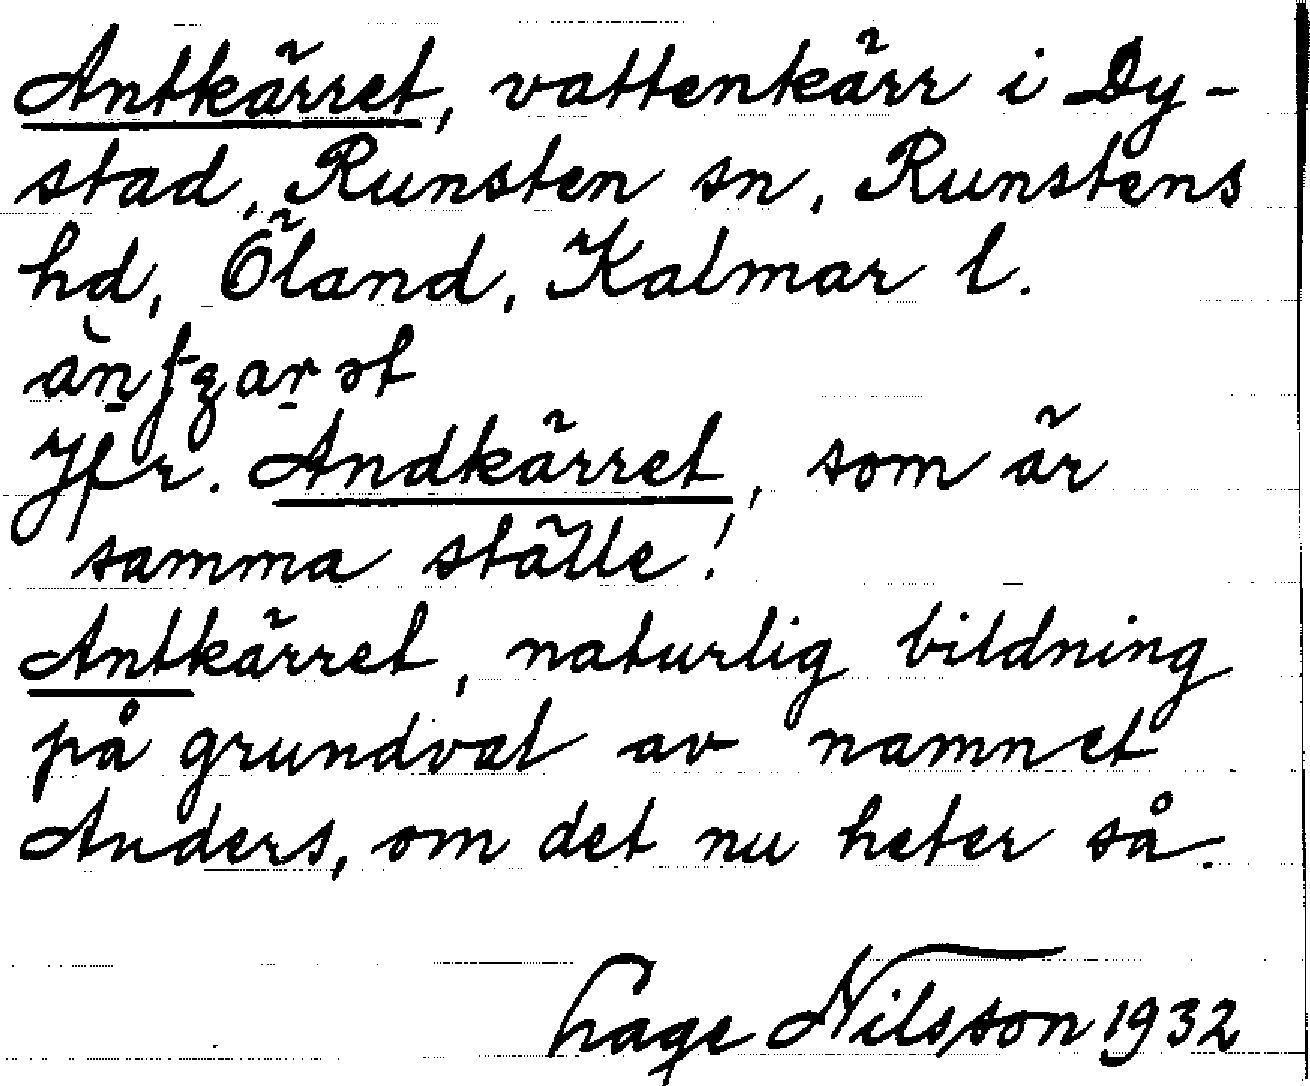 Antkärret, vattenkärr i Dy-
stad, Runsten sn, Runstens
hd, Öland, Kalmar l.
Jfr. Andkärret, som är
samma ställe!
Antkärret, naturlig bildning
på grundval av namnet
Anders, om det nu heter så.
Hage Nilsson 1932